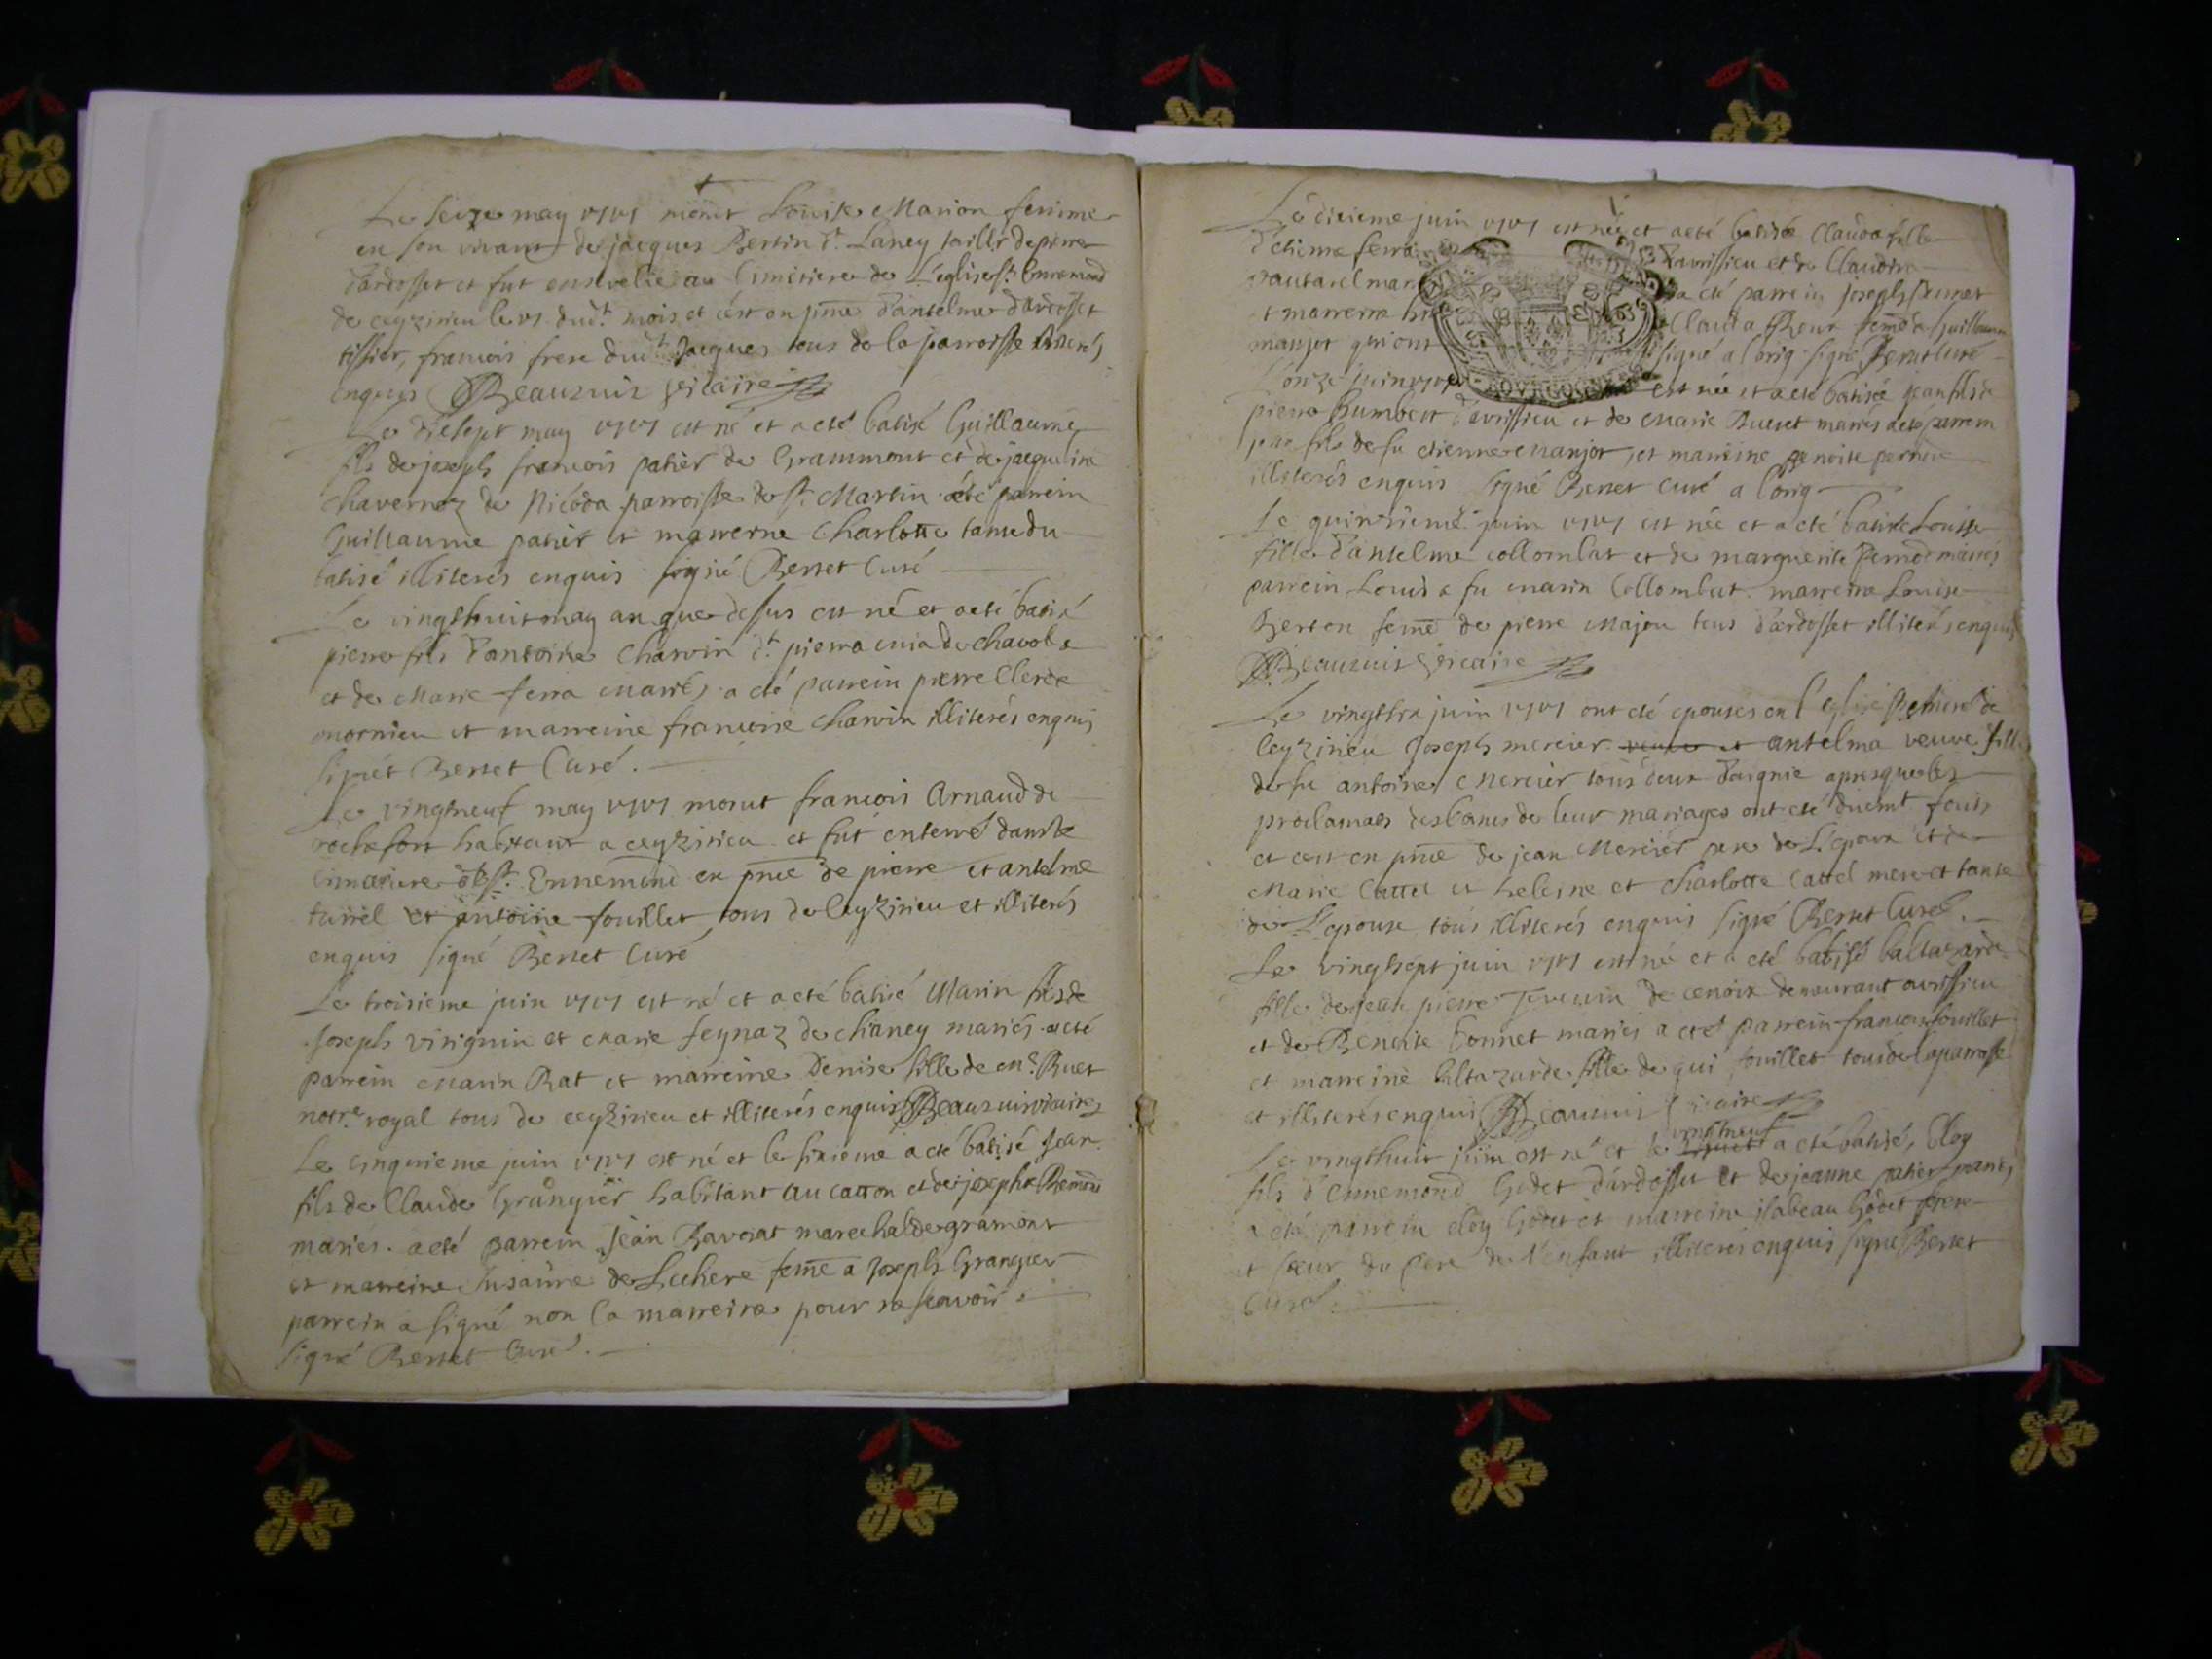 Le seize may 1701 mōrut Loüise Marion femme
en son vivant de jacques Bertin d.t Laney taillr depierre
d'ardosset et fut ensevelie au Cimetiere de L'eglise s.t Ennemond
de ceyzirieu le 17 dud.t mois et c'est en pnce d'antelme d'ardosset
tissier, francois frere dud.t Jacques tous de la parroisse illiterés
enquis Beauzuis Vicaire
Le disept may 1701 est né et a eté batisé Guillaume
fils de joseph francois patier de Grammont et de jaqueline
chavernoz de Nicoda parroisse de s.t Martin a eté parrein
Guillaume patier et marrerne Charlotte tante du
batisé illiterés enquis signé Berset Curé
Le vingthuit may an que dessus est né et a eté batisé
pierre fils d'antoine Charvin d.t pierra de chavole
et de Marie ferra mariés a eté parrein pierre Clerc
mornieu et marreine francoise charvin illiterés enquis
signét Berset Curé.
Le vingtneuf may 1701 morut francois Arnaud de
rochefort habitant a ceyzirieu et fut enterré dans le
cimetiere de st. Ennemond en pnce de pierre et antelme
turrel et antoine fouillet tous de Ceyzirieu et illiterés
enquis signé Berset Curé
Le troisieme juin 1701 est né et a eté batisé Marin fils de
Joseph viriguin et Marie feynaz de chaney mariés a eté
parrein Marin Rat et marreine Denise fille de Ruet
notre. royal tous de ceyzirieu et illiterés enquis Beauzuis vicaire
Le cinquieme juin 1701 est né et le sixieme a eté batisé Jean
fils de Claude Grangier habitant au catton et de josephe Remond
mariés. a eté parrein jean Baverat marechal de gramont
et marreine Susanne de Lechere feme a Joseph Grangier
parrein a signé non la marreine pour ne scavoir.
signé Berset Curé.
Le dixieme juin 1701 est née et a eté batisée Clauda fille
d'etienne ferra d'avrissieu et de Claudine
a eté parrein joseph
et marrerra Clauda feme a Guillaume
manjot qui ont signé a lorig signé Berset Curé
L'onze juin 1701 est née et a eté batisée jean fils de
pierre humbert d'avrissieu et de Marie mariés a eté parrein
fils de fu etienne manjot, et marreine Benoite
illiterés enquis signé Berset Curé a lorig
Le quinzieme juin 1701 est née et a eté batisée Louise
fille d'antelme collombat et de marguerite mariés
parrein Louis a fu marin Collombat. marreina Louise
Berten feme de pierre Majou tous d'ardosset illiterés enquis
Beauzuis Vicaire
Le vingt juin 1701 ont eté epousés en l'eglise de
Ceyzirieu Joseph mercier antelma veuve fille
de fu antoine Mercier tous deux d'aignie apresque les
proclamaōs des bans de leur mariages ont eté duemt faits
et cest en pnce de jean Mercier pere de L'epoux et de
Marie Cattel et helesne et charlotte Cattel mere et tante
de L'epouse tous illiterés enquis signé Berset Curé.
Le vingtsept juin 1701 est né et a eté batisé baltazarde
fille de jean pierre de cenoix demeurant avrissieu
et de Benoite bonnet mariés a eté parrein francois fouillet
et marreine baltazarde fille de gui fouillet tous de laparroisse
et illiterés enquis Beauzuis Vicaire
Le vingthuit juin est né et le vingtneuf a eté batisé, Eloy
fils d'Ennemond Godet d'ardosset et de jeanne patier mariés
a eté parrein eloy Godet et marreine isabeau Godet frere
et sœur du pere de l'enfant illiterés enquis signé Berset
Curé.